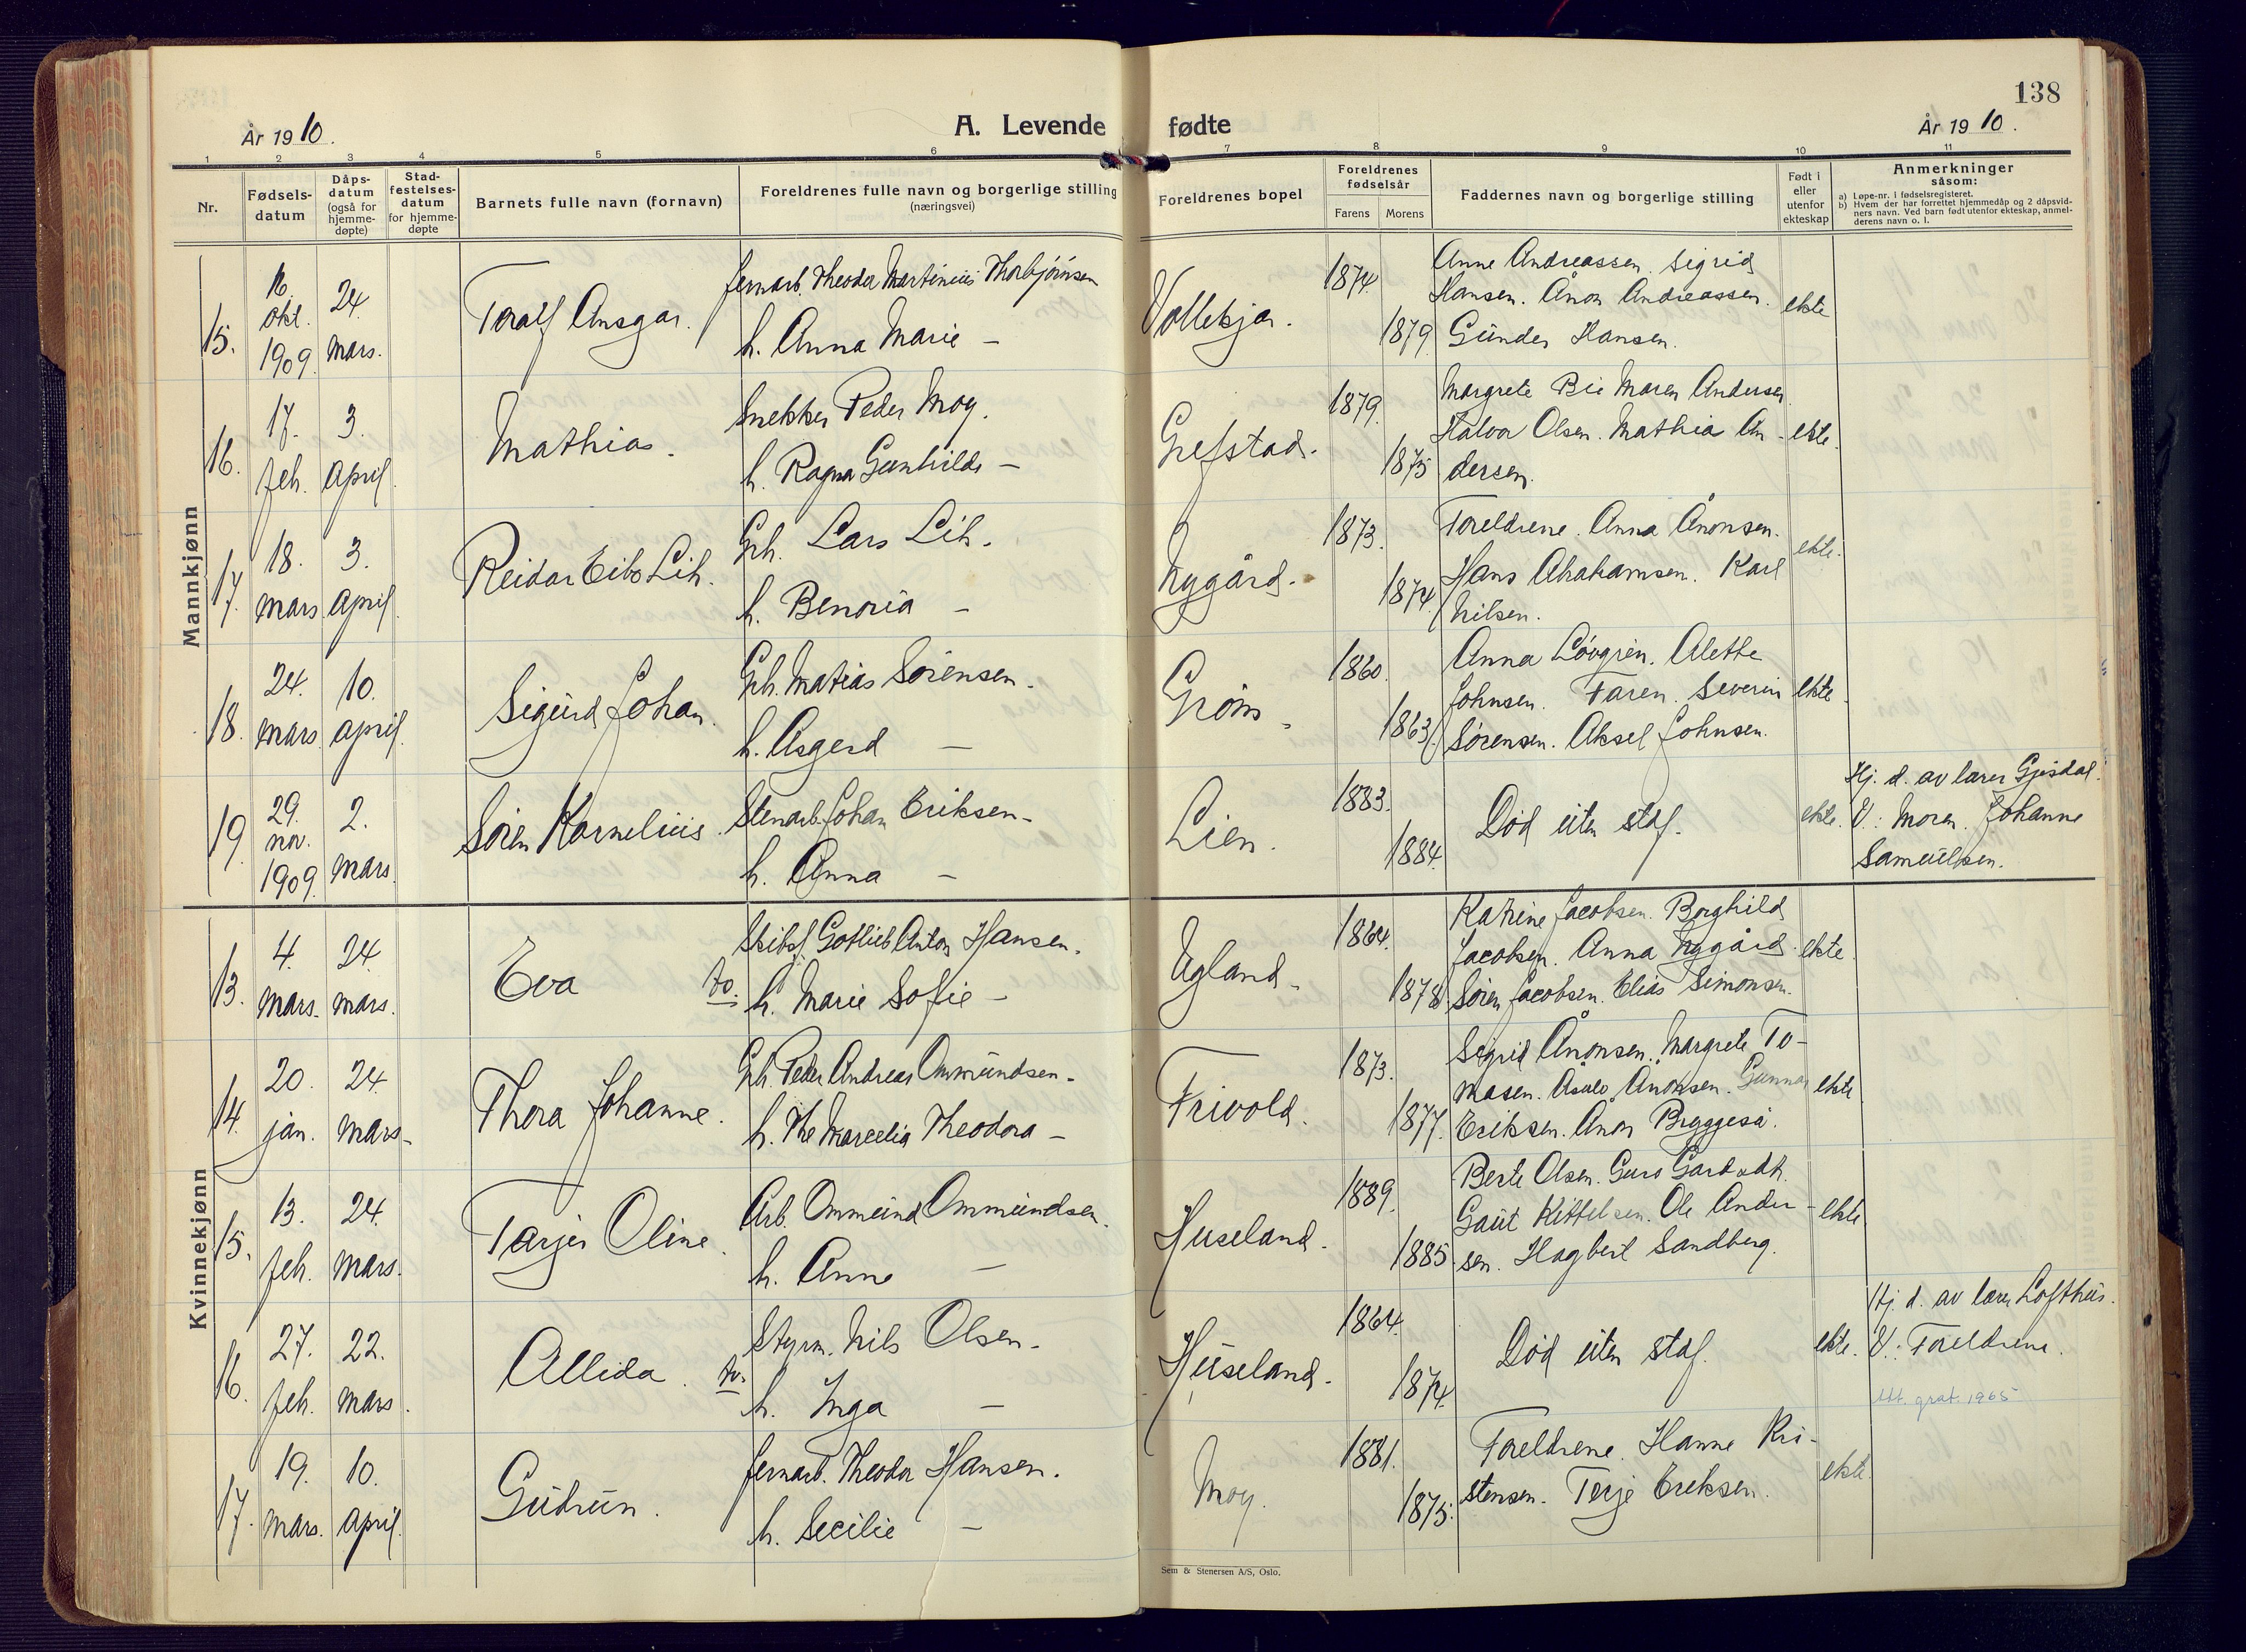 138
År 1910.
A. Levende fødte
År 1910.
1 2 3 4 5 6 7 8 9 10 11
Nr.
Fødselsdatum
Dåpsdatum (også for hjemmedøpte)
Stadfestelsesdatum for hjemmedøpte
Barnets fulle navn (fornavn)
Foreldrenes fulle navn og borgerlige stilling (næringsvei)
Foreldrenes bopel
Foreldrenes fødselsår
Farens Morens
Faddernes navn og borgerlige stilling
Født i eller utenfor ekteskap
Anmerkninger såsom:
a) Løpe-nr. i fødselsregisteret.
b) Hvem der har forrettet hjemmedåp og 2 dåpsvidners navn. Ved barn født utenfor ekteskap, anmelderens navn o. l.
Mannkjønn
15. 16. okt. 1909. 24. mars.
Toralf Ansgar.
Jernarb. Theodor Martinius Thorbjørnsen
h. Anna Marie —
Vollekjær.
1874. 1879
Anne Andreassen. Sigrid
Hansen. Ånon Andreassen.
Gunder Hansen.
ekte
16. 17. feb. 3. april.
Mathias.
Snekker Peder Moy.
h. Ragna Gunhilde —
Grefstad.
1879. 1875
Margrete Bie Maren Andersen
Halvor Olsen. Mathia An-
dersen.
ekte.
17. 18. mars 3. april
Reidar Eibo Lih.
Gph. Lars Lih.
h. Benoria —
Nygård.
1873. 1874.
Foreldrene. Anna Ånonsen.
Hans Abrahamsen. Karl
Nilsen.
ekte.
18. 24. mars 10. april.
Sigurd Johan.
Gph. Matias Sørensen.
h. Asgerd —
Grøm.
1860. 1863.
Anna Løvgren. Alette
Johnsen. Faren. Severin
Sørensen. Aksel Johnsen.
ekte
19. 29. nov. 1909. 2. mars.
Søren Kornelius.
Stenarb. Johan Eriksen.
h. Anna —
Lien.
1883. 1884.
Død uten staf.
ekte.
Hj. d. av lærer Gjesdal.
V.: Moren. Johanne
Samuelsen.
Kvinnekjønn
13. 4. mars. 24. mars.
Eva
to.
Skibsf. Gotlieb Anton Hansen.
h. Marie Sofie —
Ugland.
1864. 1878.
Katrine Jacobsen. Borghild
Jacobsen. Anna Nygård
Søren Jacobsen. Elias Simonsen.
ekte.
14. 20. jan. 24. mars.
Thora Johanne.
Gph. Peder Andreas Ommundsen.
h. The Marcelia Theodora —
Frivold.
1873. 1877.
Sigrid Ånonsen. Margrete To-
masen. Åsulv Ånonsen. Gunnar
Eriksen. Ånon Bryggeså.
ekte
15. 13. feb. 24. mars.
Tarjer Oline.
Arb. Ommund Ommundsen.
h. Anne —
Huseland.
1889. 1885.
Berte Olsen. Guro
Gaut Kittelsen. Ole Ander-
sen. Hagbert Sandberg.
ekte
16. 27. feb. 22. mars.
Allida.
to.
Styrm. Nils Olsen.
h. Inga —
Huseland.
1864. 1874.
Død uten staf.
ekte.
Hj. d. av lærer Lofthus.
V.: Foreldrene.
Att. grat. 1965
17. 19. mars. 10. april.
Gudrun.
Jernarb. Theodor Hansen.
h. Secilie —
Moy.
1881. 1875.
Foreldrene. Hanne Kri-
stensen. Terje Eriksen.
ekte.
Sem & Stenersen A/S, Oslo.